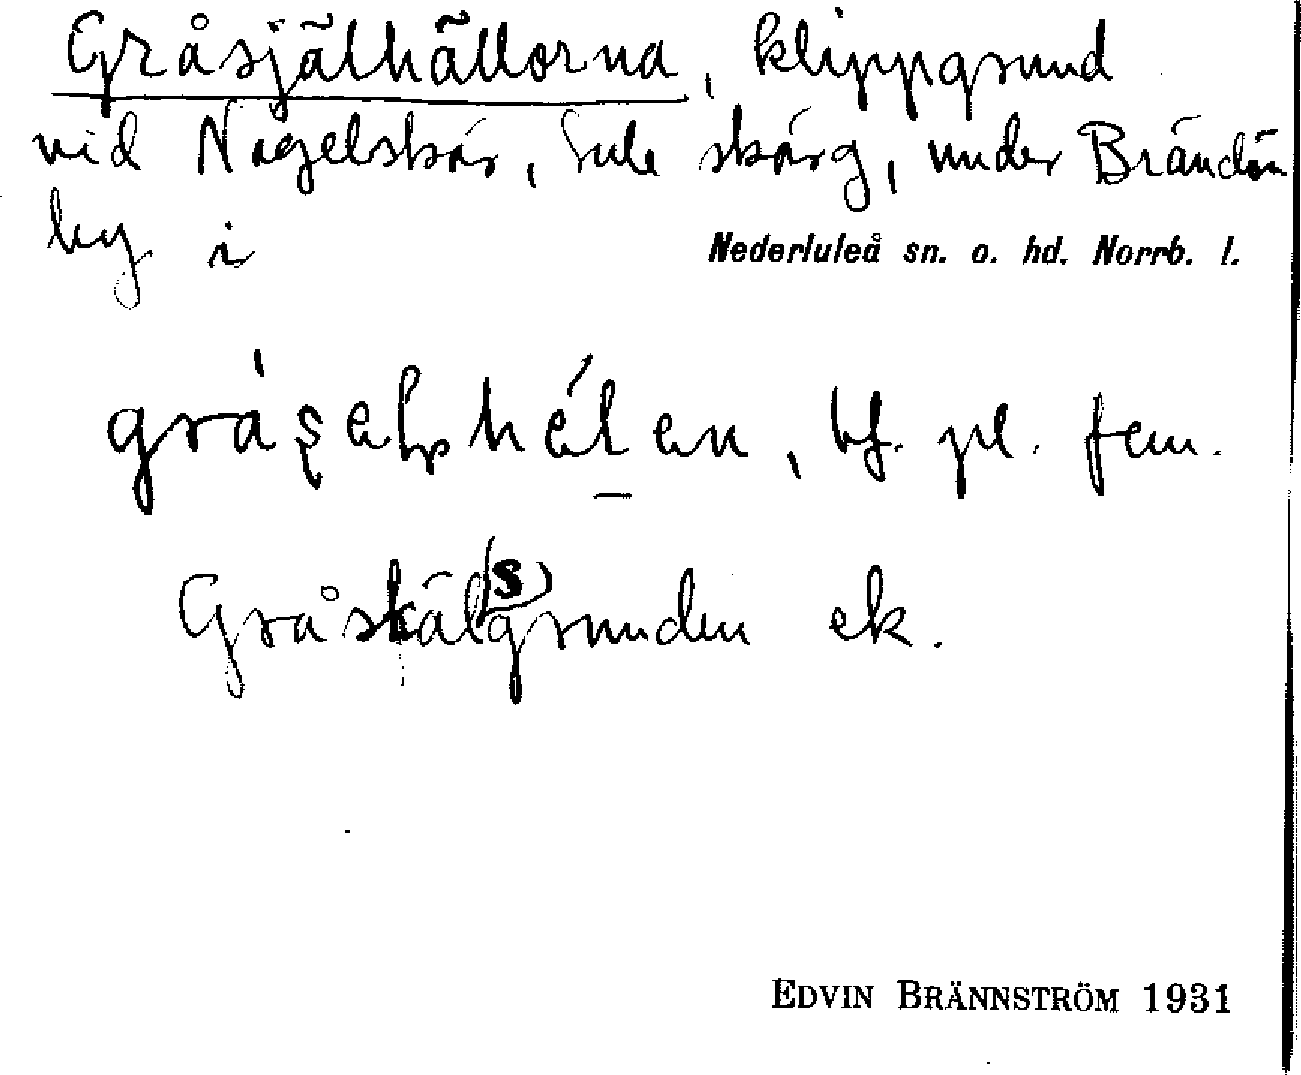 Gråsjälhällorna, klippgrund
vid Nagelskär, Lule skärg, under Brändön
by i Nederluleå sn. o. hd. Norrb. l.
bf. pl. fem.
Gråskäl(s)grunden ek.
EDVIN BRÄNNSTRÖM 1931